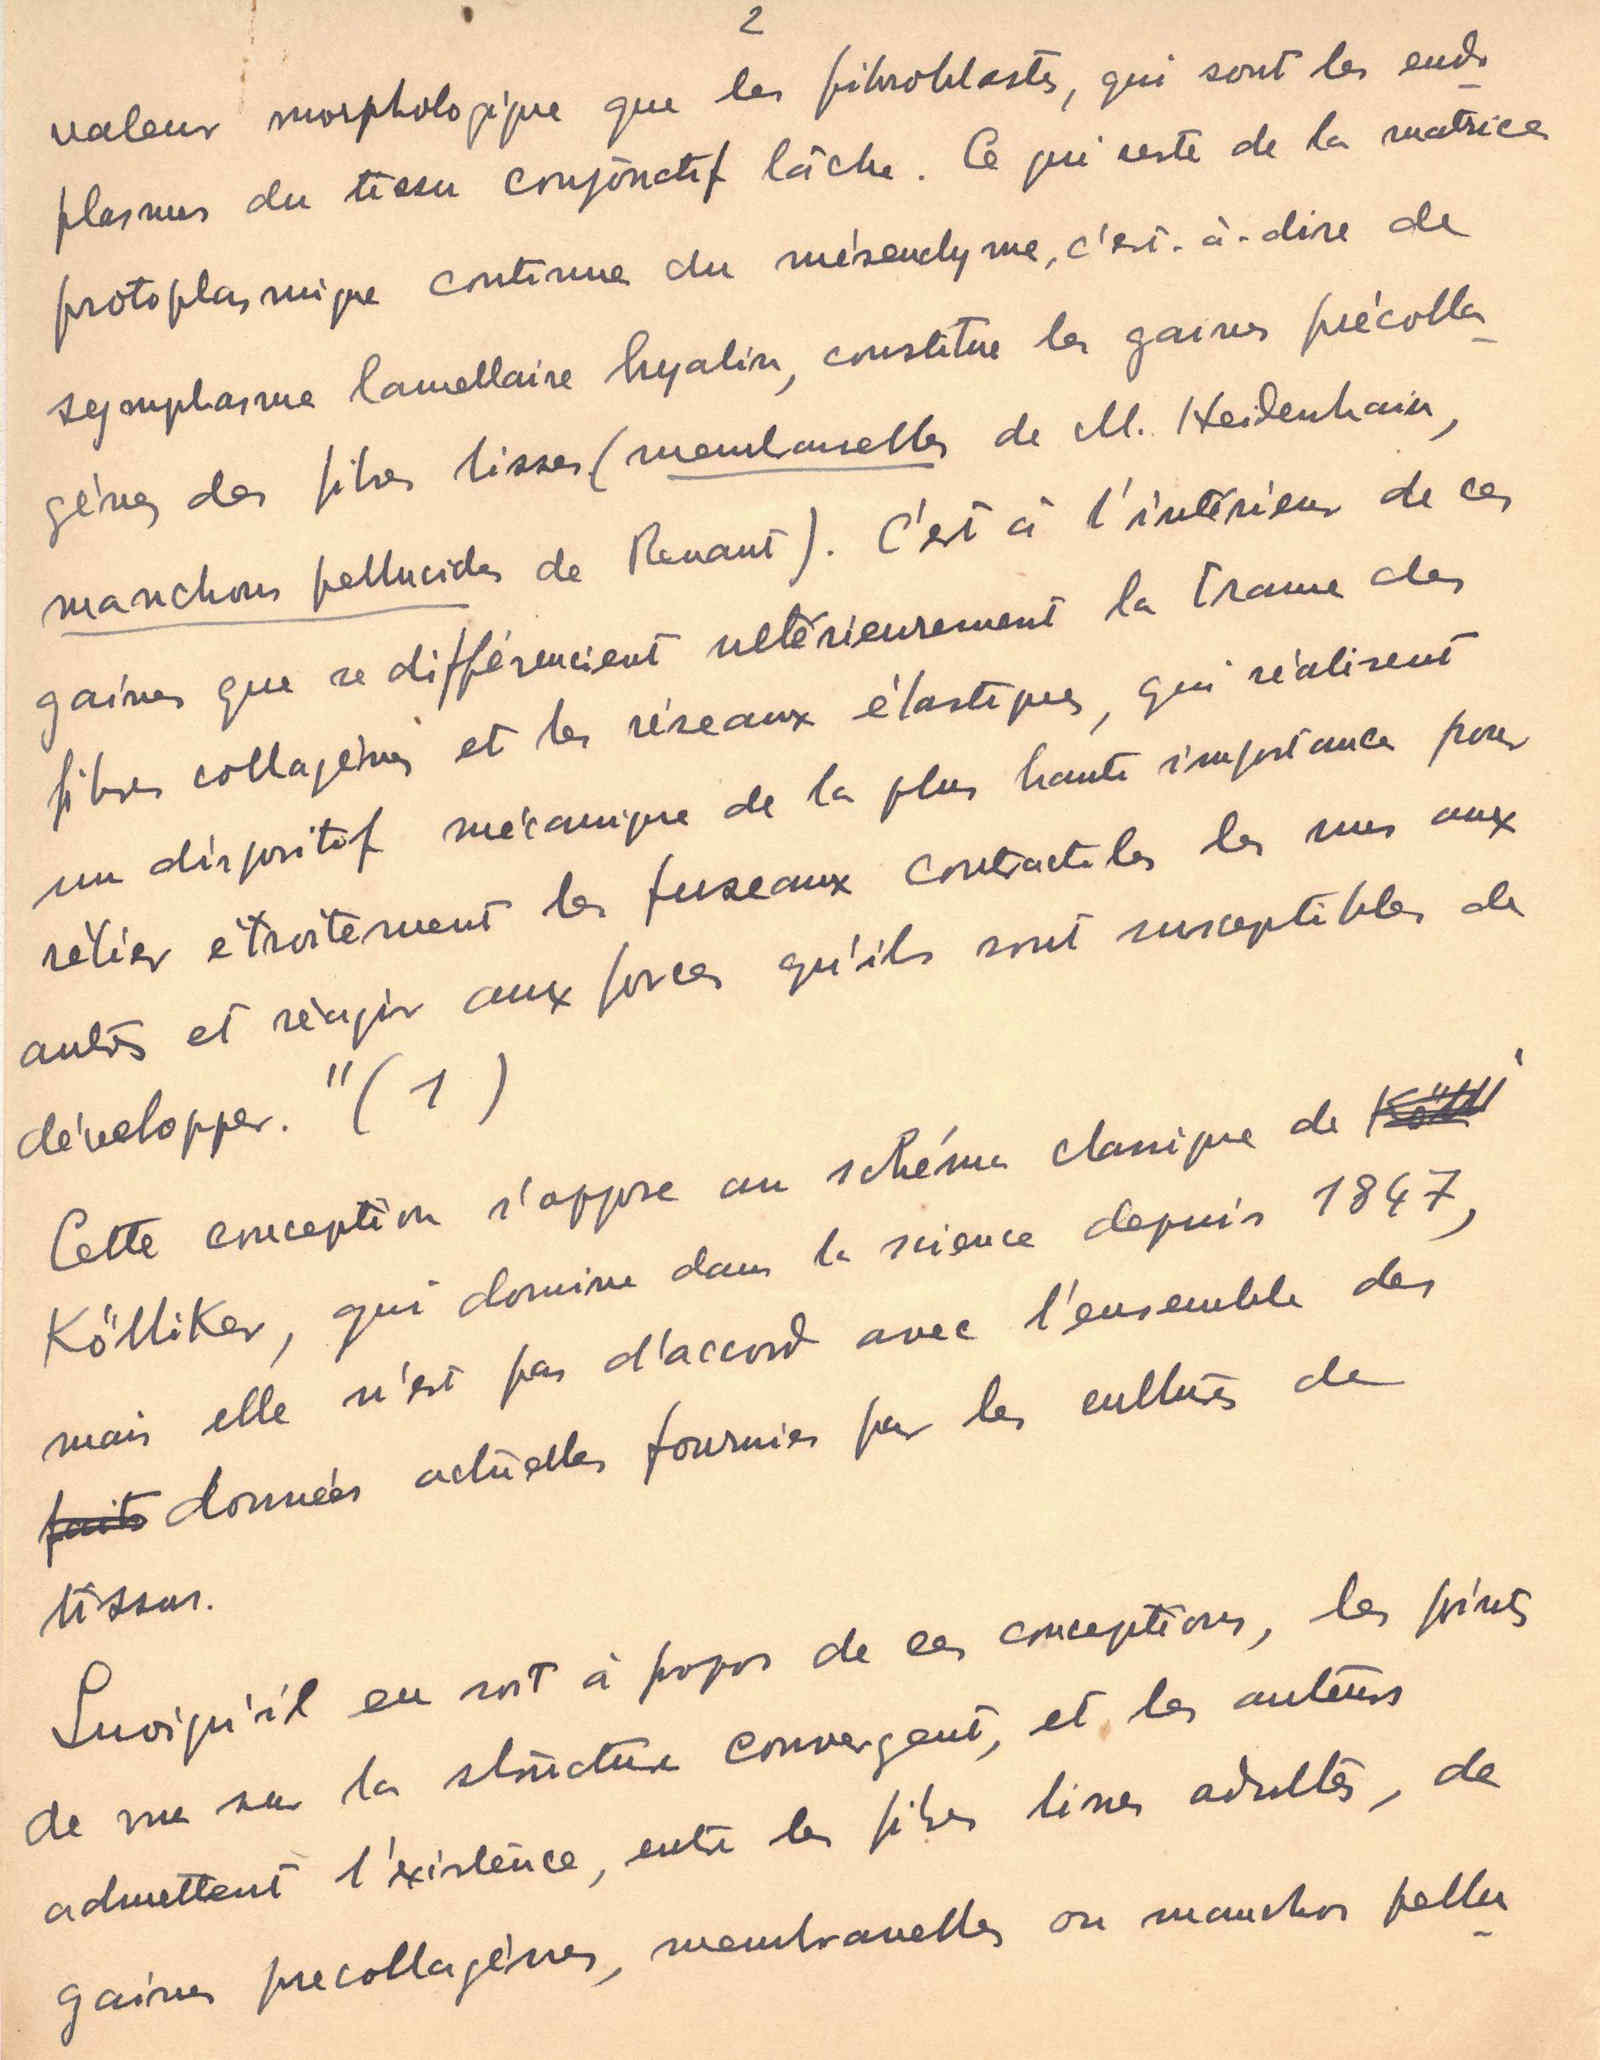 2
valeur morphologique que les fibroblastes, qui sont les endo-
plasmes du tissu conjonctif lâche. Ce qui reste de la matrice
protoplasmique continue du mésenchyme, c'est-à-dire de
symplasme lamellaire hyalin, constitue les gaines précolla-
gènes des fibres lisses (membranelles de M. Heidenhain,
manchons pellucides de Renaut). C'est à l'intérieur de ces
gaines que se différencient ultérieurement la trame des
fibres collagènes et les réseaux élastiques, qui réalisent
un dispositif mécanique de la plus haute importance pour
relier étroitement les fuseaux contractiles les uns aux
autres et réagir aux forces qu'ils sont susceptibles de
développer." (1)
Cette conception s'oppose au schéma classique de Kölli
Kölliker, qui domine dans la science depuis 1847,
mais elle n'est pas d'accord avec l'ensemble des
faits données actuelles fournies par les cultures de
tissus.
Quoiqu'il en soit à propos de ces conceptions, les points
de vue sur la structure convergent, et les auteurs
admettent l'existence, entre les fibres lisses adultes, de
gaines precollagènes, membranelles ou manchos pellu-